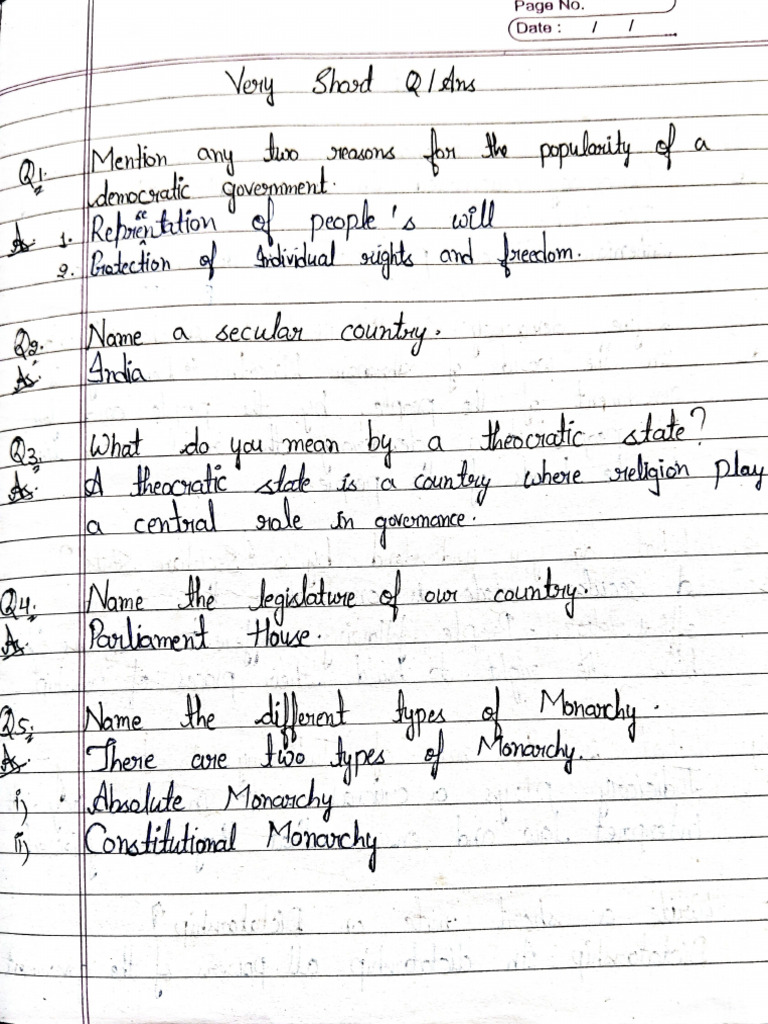 Page No.
Date : / /
Very Shord Q/Ans
Q1. Mention any two reasons for the popularity of a
democratic government.
As. 1. Representation of people's will
2. Protection of Individual rights and freedom.
Q2. Name a secular country.
As. India
Q3. What do you mean by a theocratic state?
As. A theocratic state is a country where religion play
a central role in governance.
Q4. Name the legislature of our country.
As. Parliament House.
Q5. Name the different types of Monarchy.
As. There are two types of Monarchy.
i) Absolute Monarchy
ii) Constitutional Monarchy